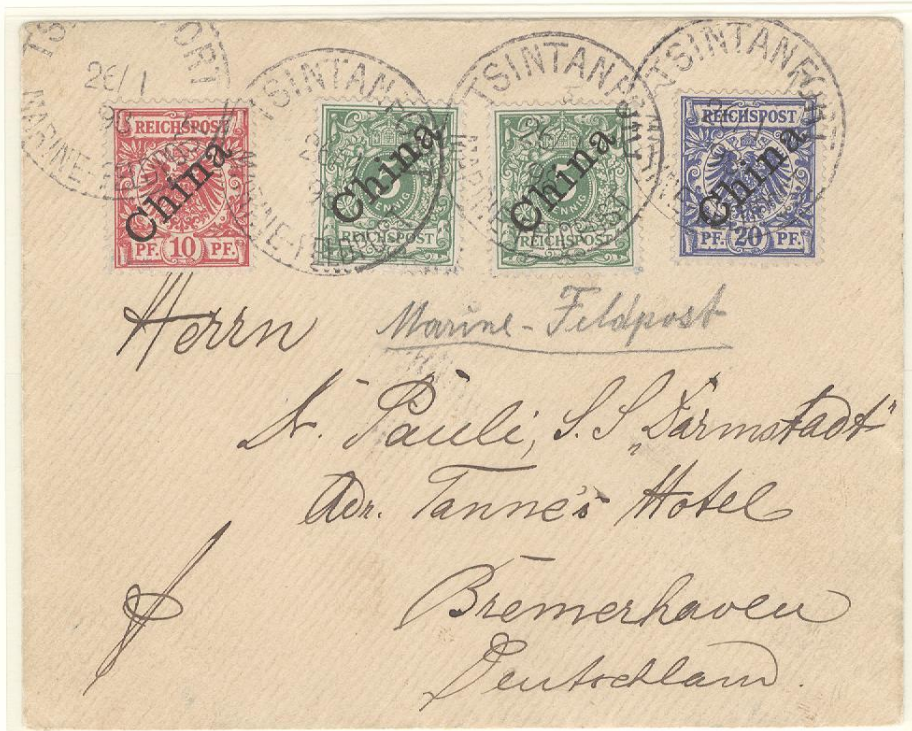 TSINTANFORT
26/1
98
MARINE-FELDPOST
TSINTANFORT
26/1
MARINE-FELDPOST
TSINTANFORT
26
MARINE-FELDPOST
TSINTANFORT
REICHSPOST
China
PF. 10 PF.
China
5
PFENNIG
REICHSPOST
China
5
PFENNIG
REICHSPOST
REICHSPOST
China
PF. 20 PF.
Herrn Marine-Feldpost
Dr. Pauli, S. S „Darmstadt"
Adr. Tanne's Hotel
Bremerhaven
Deutschland.